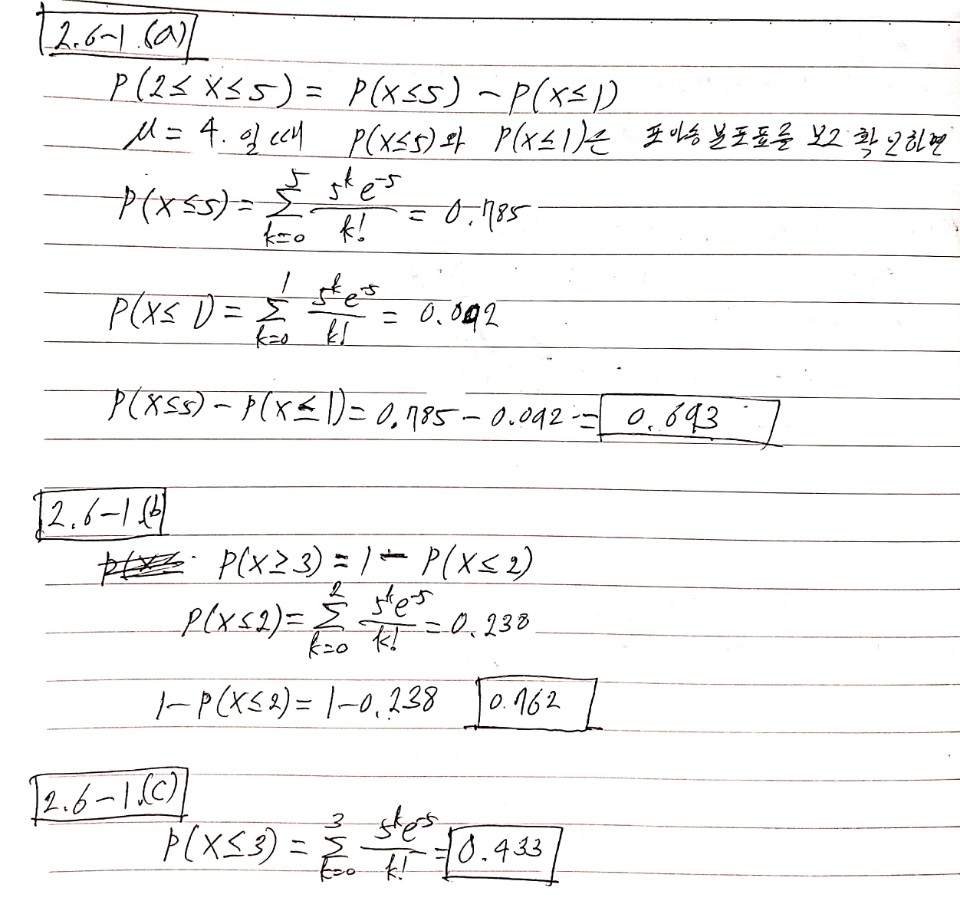 2.6-1.(a)
P(2≤X≤5) = P(X≤5) - P(X≤1)
M = 4. 일 때 P(X≤5)와 P(X≤1)은 포아송 분포표를 보고 확인하면
P(X≤5) = \sum_{k=0}^{5} \frac{5^k e^{-5}}{k!} = 0.785
P(X≤1) = \sum_{k=0}^{1} \frac{5^k e^{-5}}{k!} = 0.092
P(X≤5) - P(X≤1) = 0.785 - 0.092 = 0.693
2.6-1.(b)
P(X≥3) = 1 - P(X≤2)
P(X≤2) = \sum_{k=0}^{2} \frac{5^k e^{-5}}{k!} = 0.238
1 - P(X≤2) = 1 - 0.238 0.762
2.6-1.(c)
P(X≤3) = \sum_{k=0}^{3} \frac{5^k e^{-5}}{k!} = 0.433